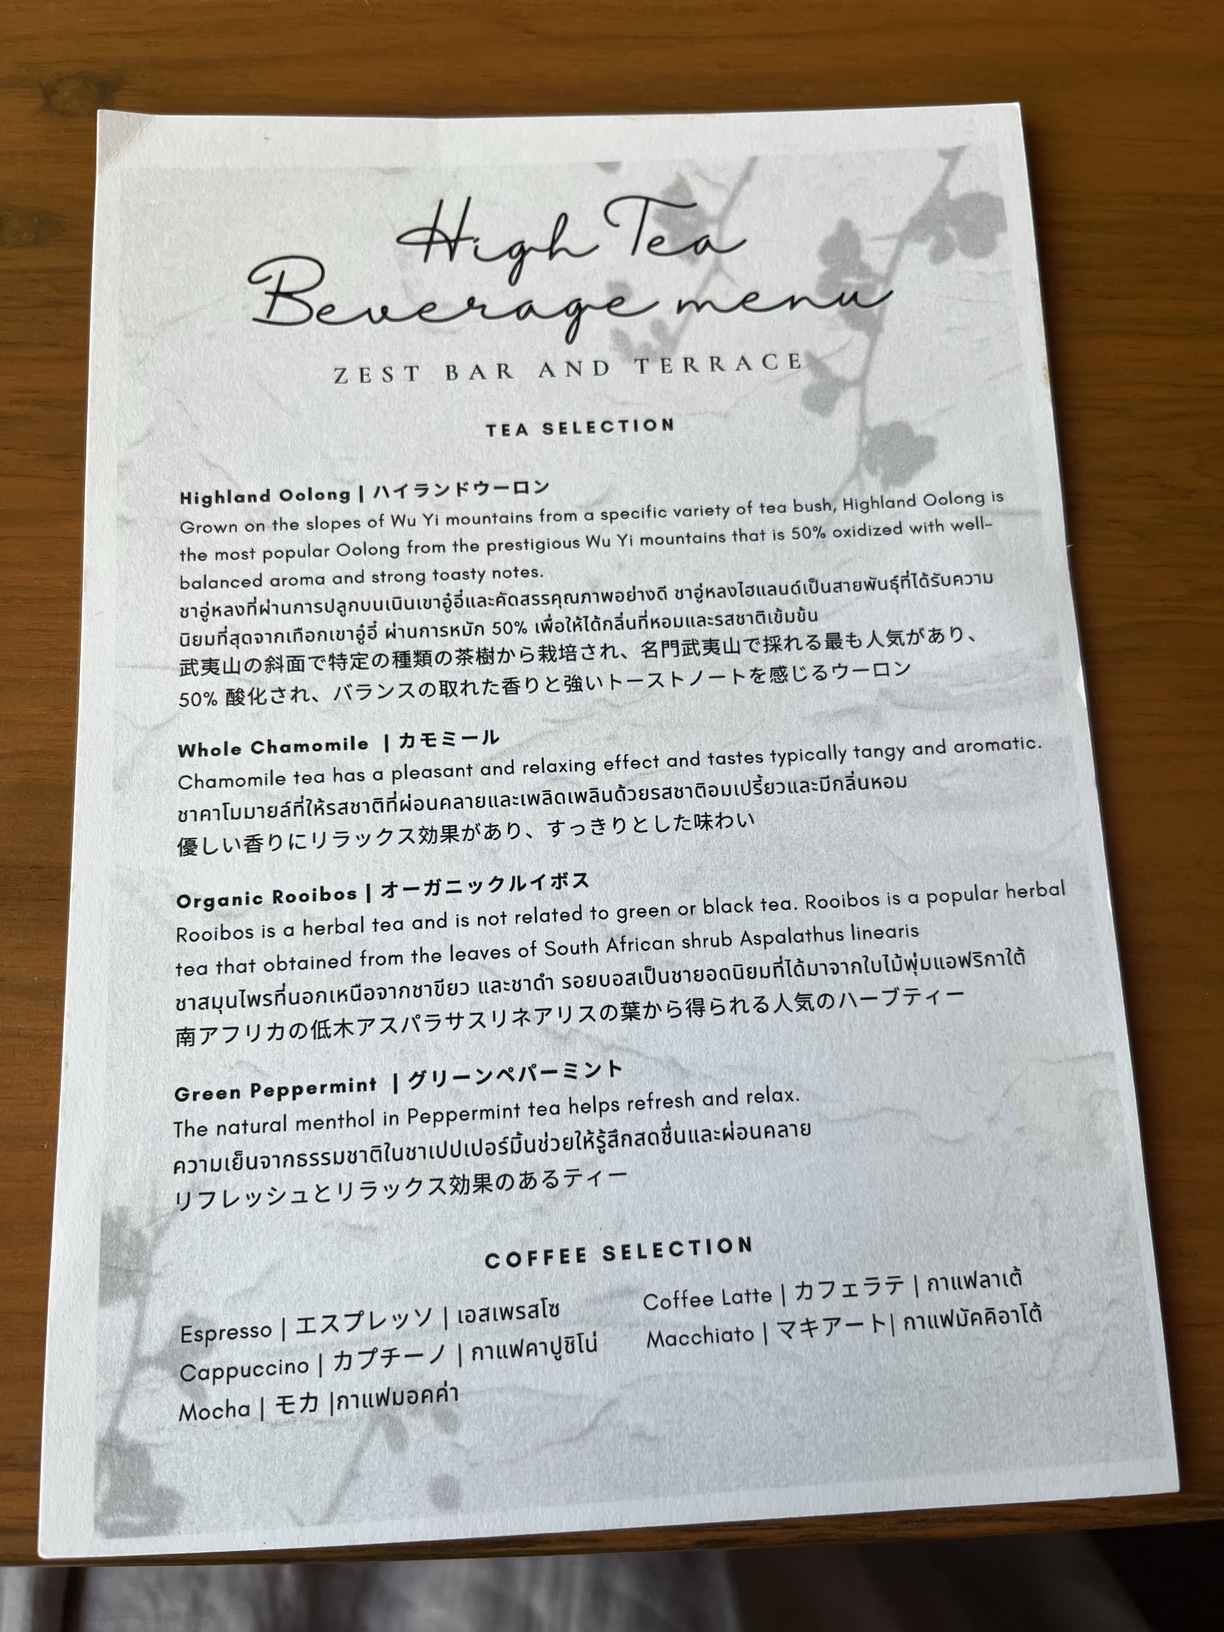 High Tea
Beverage menu
ZEST BAR AND TERRACE
TEA SELECTION
Highland Oolong | ハイランドウーロン
Grown on the slopes of Wu Yi mountains from a specific variety of tea bush, Highland Oolong is
the most popular Oolong from the prestigious Wu Yi mountains that is 50% oxidized with well-
balanced aroma and strong toasty notes.
ชาอู่หลงที่ผ่านการปลูกบนเนินเขาอู๋อี่และคัดสรรคุณภาพอย่างดี ชาอู่หลงไฮแลนด์เป็นสายพันธุ์ที่ได้รับความ
นิยมที่สุดจากเทือกเขาอู๋อี่ ผ่านการหมัก 50% เพื่อให้ได้กลิ่นที่หอมและรสชาติเข้มข้น
武夷山の斜面で特定の種類の茶樹から栽培され、名門武夷山で採れる最も人気があり、
50% 酸化され、バランスの取れた香りと強いトーストノートを感じるウーロン
Whole Chamomile | カモミール
Chamomile tea has a pleasant and relaxing effect and tastes typically tangy and aromatic.
ชาคาโมมายล์ที่ให้รสชาติที่ผ่อนคลายและเพลิดเพลินด้วยรสชาติอมเปรี้ยวและมีกลิ่นหอม
優しい香りにリラックス効果があり、すっきりとした味わい
Organic Rooibos | オーガニックルイボス
Rooibos is a herbal tea and is not related to green or black tea. Rooibos is a popular herbal
tea that obtained from the leaves of South African shrub Aspalathus linearis
ชาสมุนไพรที่นอกเหนือจากชาเขียว และชาดำ รอยบอสเป็นชายอดนิยมที่ได้มาจากใบไม้พุ่มแอฟริกาใต้
南アフリカの低木アスパラサスリネアリスの葉から得られる人気のハーブティー
Green Peppermint | グリーンペパーミント
The natural menthol in Peppermint tea helps refresh and relax.
ความเย็นจากธรรมชาติในชาเปปเปอร์มิ้นช่วยให้รู้สึกสดชื่นและผ่อนคลาย
リフレッシュとリラックス効果のあるティー
COFFEE SELECTION
Espresso | エスプレッソ | เอสเพรสโซ
Cappuccino | カプチーノ | กาแฟคาปูชิโน่
Mocha | モカ |กาแฟมอคค่า
Coffee Latte | カフェラテ | กาแฟลาเต้
Macchiato | マキアート| กาแฟมัคคิอาโต้